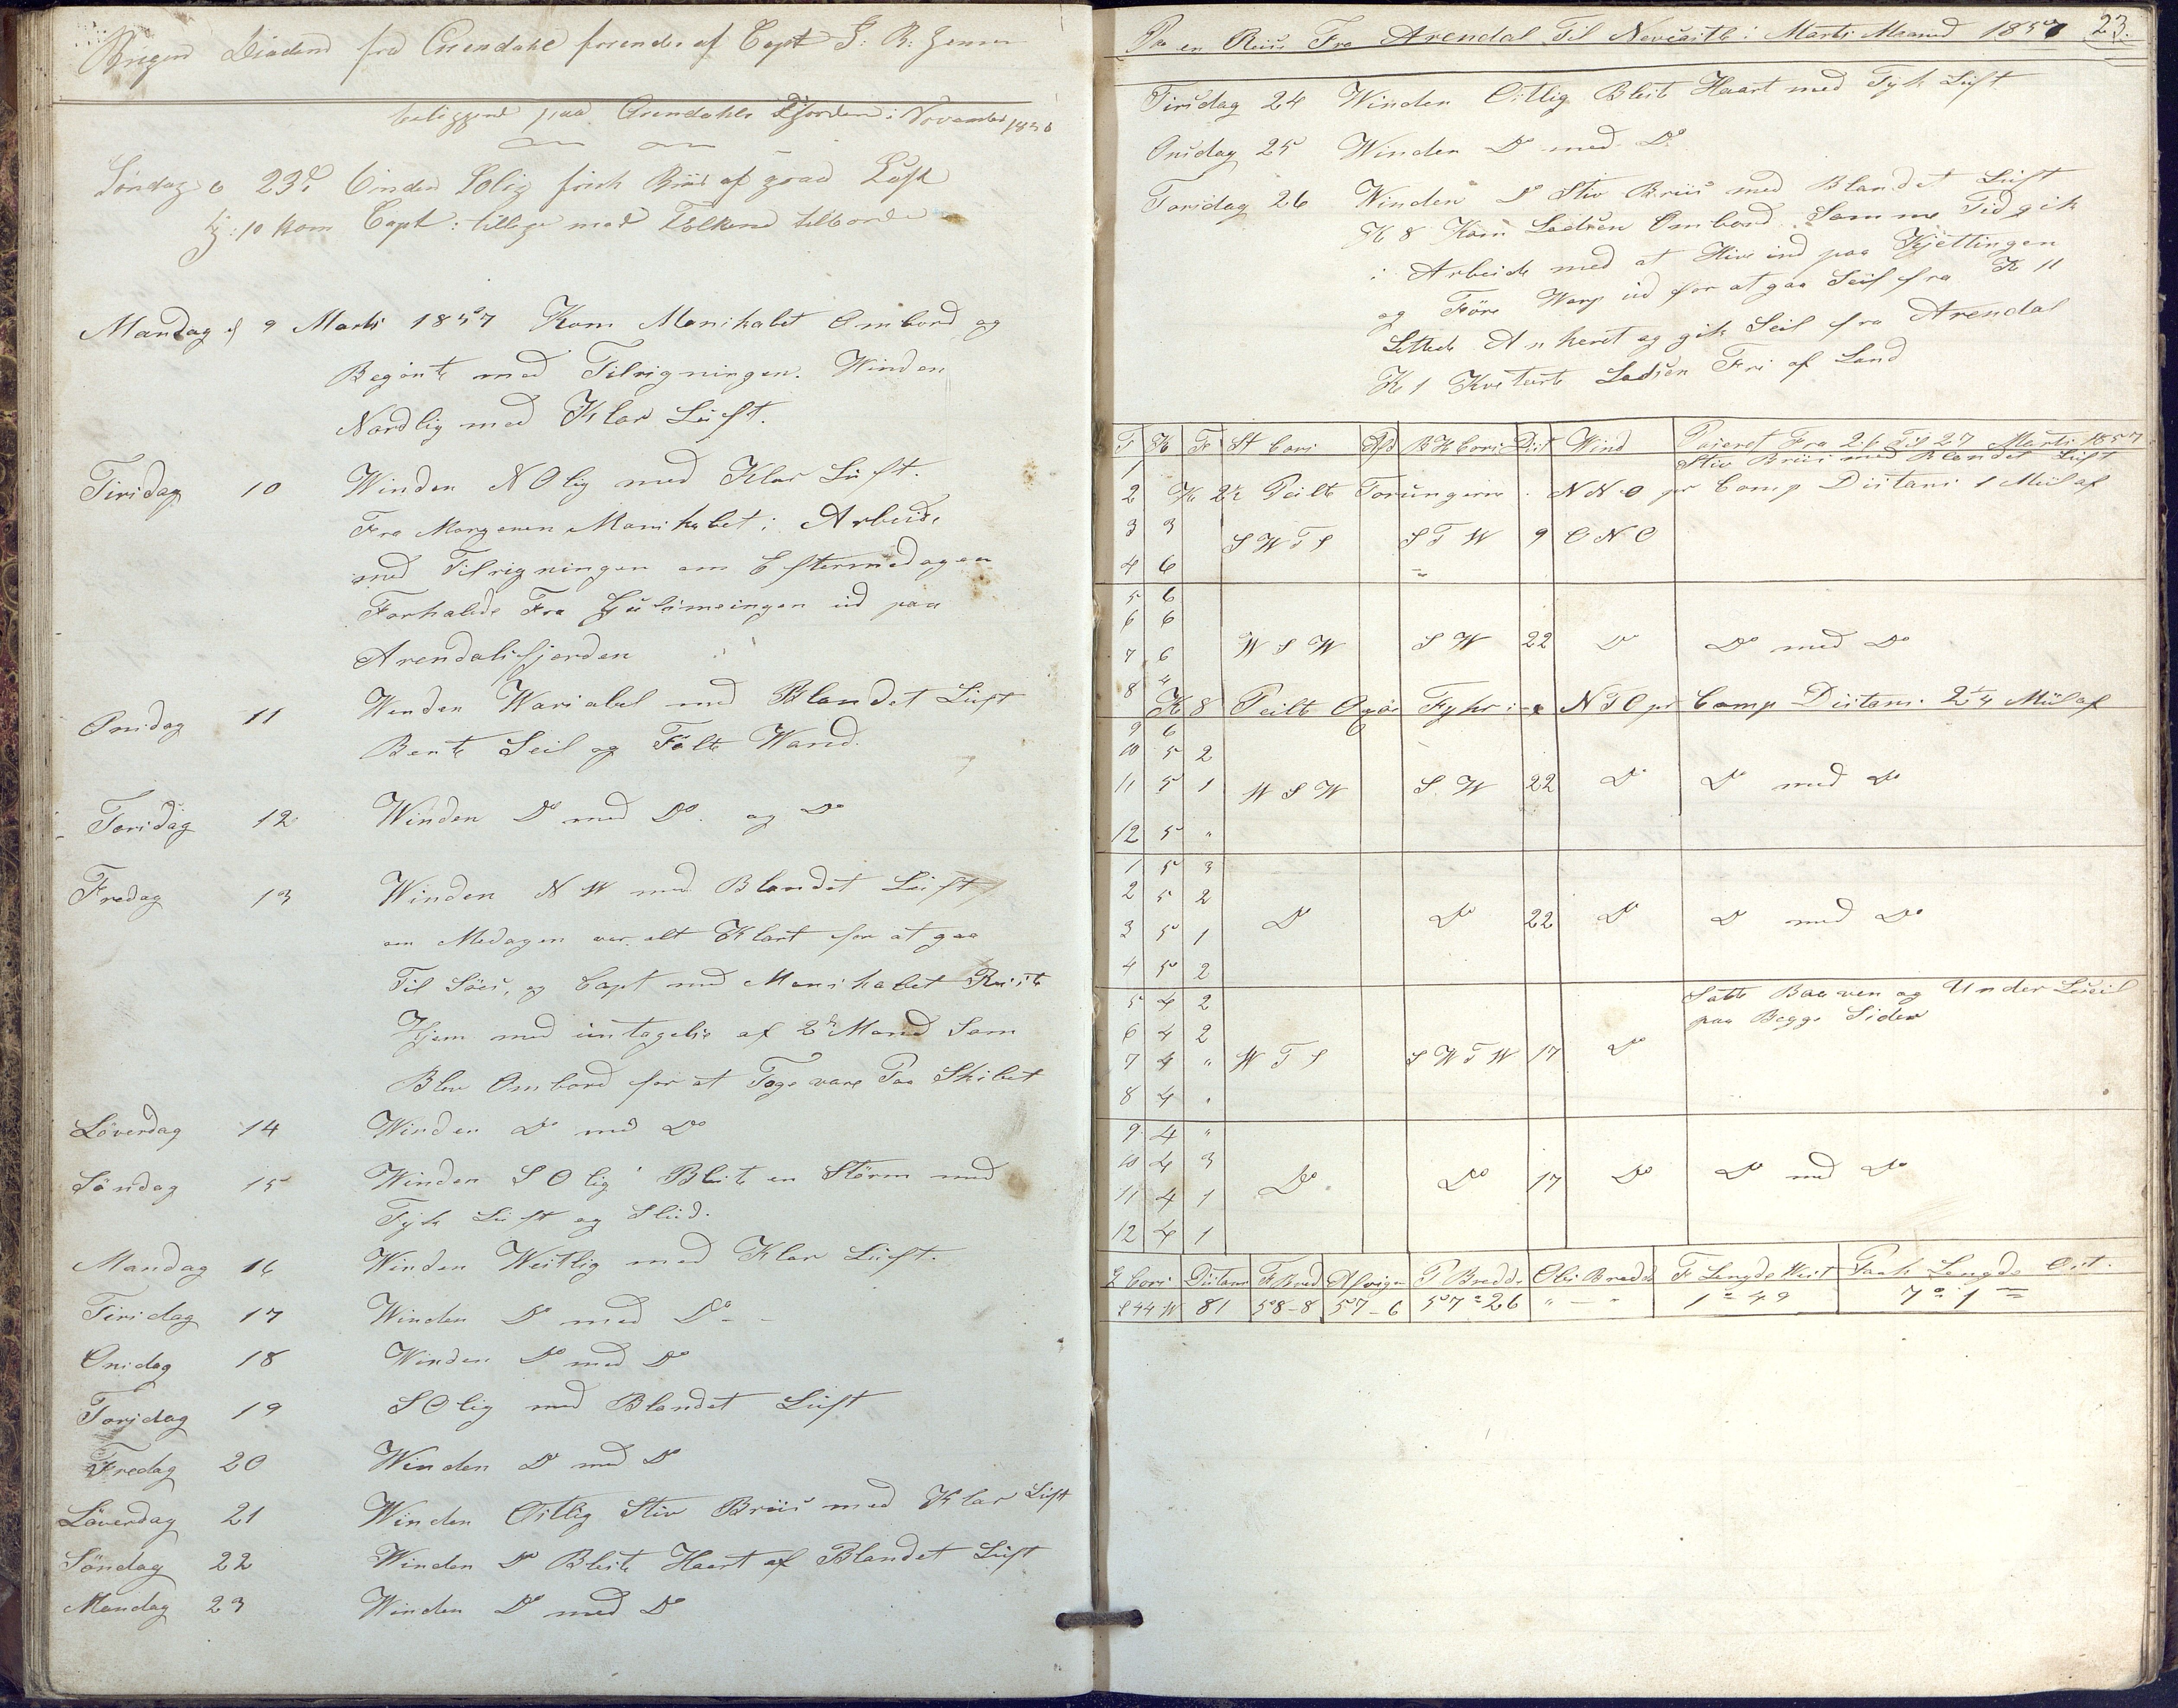 Brigen Diadem fra Arendahl førendes af Capt J: B: Jensen
beliggend paa Arendahls Fjorden i November 1856
Søndag d 23de Vinden Solig frisk Briis af graa Luft
kj: 10 kom Capt: tillige med Folkene tilborde
Mandag d 9 Marts 1857 Kom Manskabet Ombord og
Begønte med Tilrigningen. Winden
Nordlig med Klar Luft.
Tirsdag 10 Winden NOlig med Klar Luft.
Fra Morgenen Manskabet i Arbeide
med Tilrigningen om Eftermedagen
Forhalede Fra ud paa
Arendalsfjorden
Onsdag 11 Winden Wariabel med Blandet Luft
Bente Seil og Fölte Wand.
Torsdag 12 Winden Do med Do. og Do
Fredag 13 Winden NW med Blandet Luft
om Medagen var alt Klart for at gaa
Til Söes, og Capt med Manskabet Reiste
Hjem med untagelse af 2de Mand Som
Blev Ombord for at Tage vare Paa Skibet
Löverdag 14 Winden Do med Do
Söndag 15 Winden SOlig Bleste en Storm med
Tyk Luft og Slud.
Mandag 16 Winden Westlig med Klar Luft.
Tirsdag 17 Winden Do med Do - -
Onsdag 18 Winden Do med Do
Torsdag 19 SOlig med Blandet Luft
Fredag 20 Winden Do med Do
Löverdag 21 Winden Ostlig Stiv Briis med Klar Luft
Söndag 22 Winden Do Bleste Haart af Blandet Luft
Mandag 23 Winden Do med Do
Paa en Reise Fra Arendal Til Newcastle i Marts Maaned 1857 23.
Tirsdag 24 Winden Ostlig Bleste Haart med Tyk Luft
Onsdag 25 Winden Do med Do
Torsdag 26 Winden Do Stiv Briis med Blandet Luft
Kl 8 Kom Lodsen Ombord. Samme Tid gik
i Arbeide med at Hive ind paa Kjettingen
og Före Warp ud for at gaa Seil fra Kl 11
Lettede Ankeret og gik Seil fra Arendal
Kl 1 Kviterte Lodsen Fri af Land
T K F St Cors Afd BH Cors Dist Wind Passeret Fra 26 Til 27 Marts 1857
1 Stiv Briis med Blandet Luft
2 Kl 2½ Peilte Torungerne i NNO pr Comp Distans 1 Miil af
3 3 SWTS STW 9 ONO
4 6 "
5 6
6 6
7 6 WSW SW 22 Do Do med Do
8 4
Kl 8 Peilte Oxöe Fyhr i NTO pr Comp Distans 2¼ Miil af
9 6
10 5 2
11 5 1 WSW S.W 22 Do Do med Do
12 5 "
1 5 3
2 5 2
3 5 1 Do Do 22 Do Do med Do
4 5 2
5 4 2 Satte Baaven og Under Leseil
6 4 2 paa Begge Sider
7 4 " WTS SWTW 17 Do
8 4 "
9 4 "
10 4 3
11 4 1 Do Do 17 Do Do med Do
12 4 1
G Cors Distans F Bred Afvigen P Bredde Obs Bredde F Lengde West Paak Lengde Ost.
S44W 81 58-8 57-6 57=26 " - " 1=49 7°1